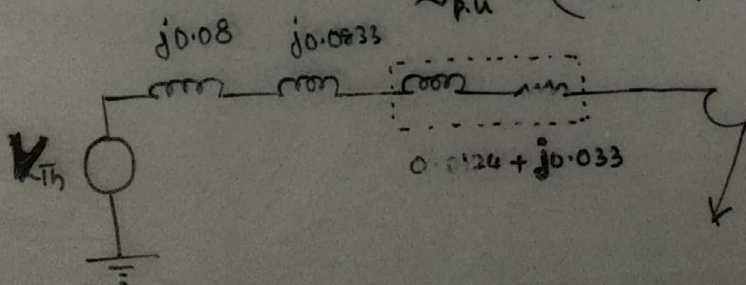 p.u
j0.08 j0.0833
V_Th
+ j0.033